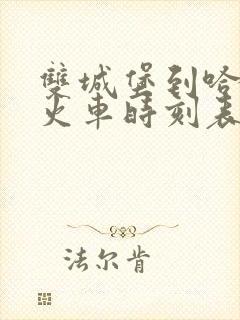 雙城堡到哈
火車時刻表
法尔肯